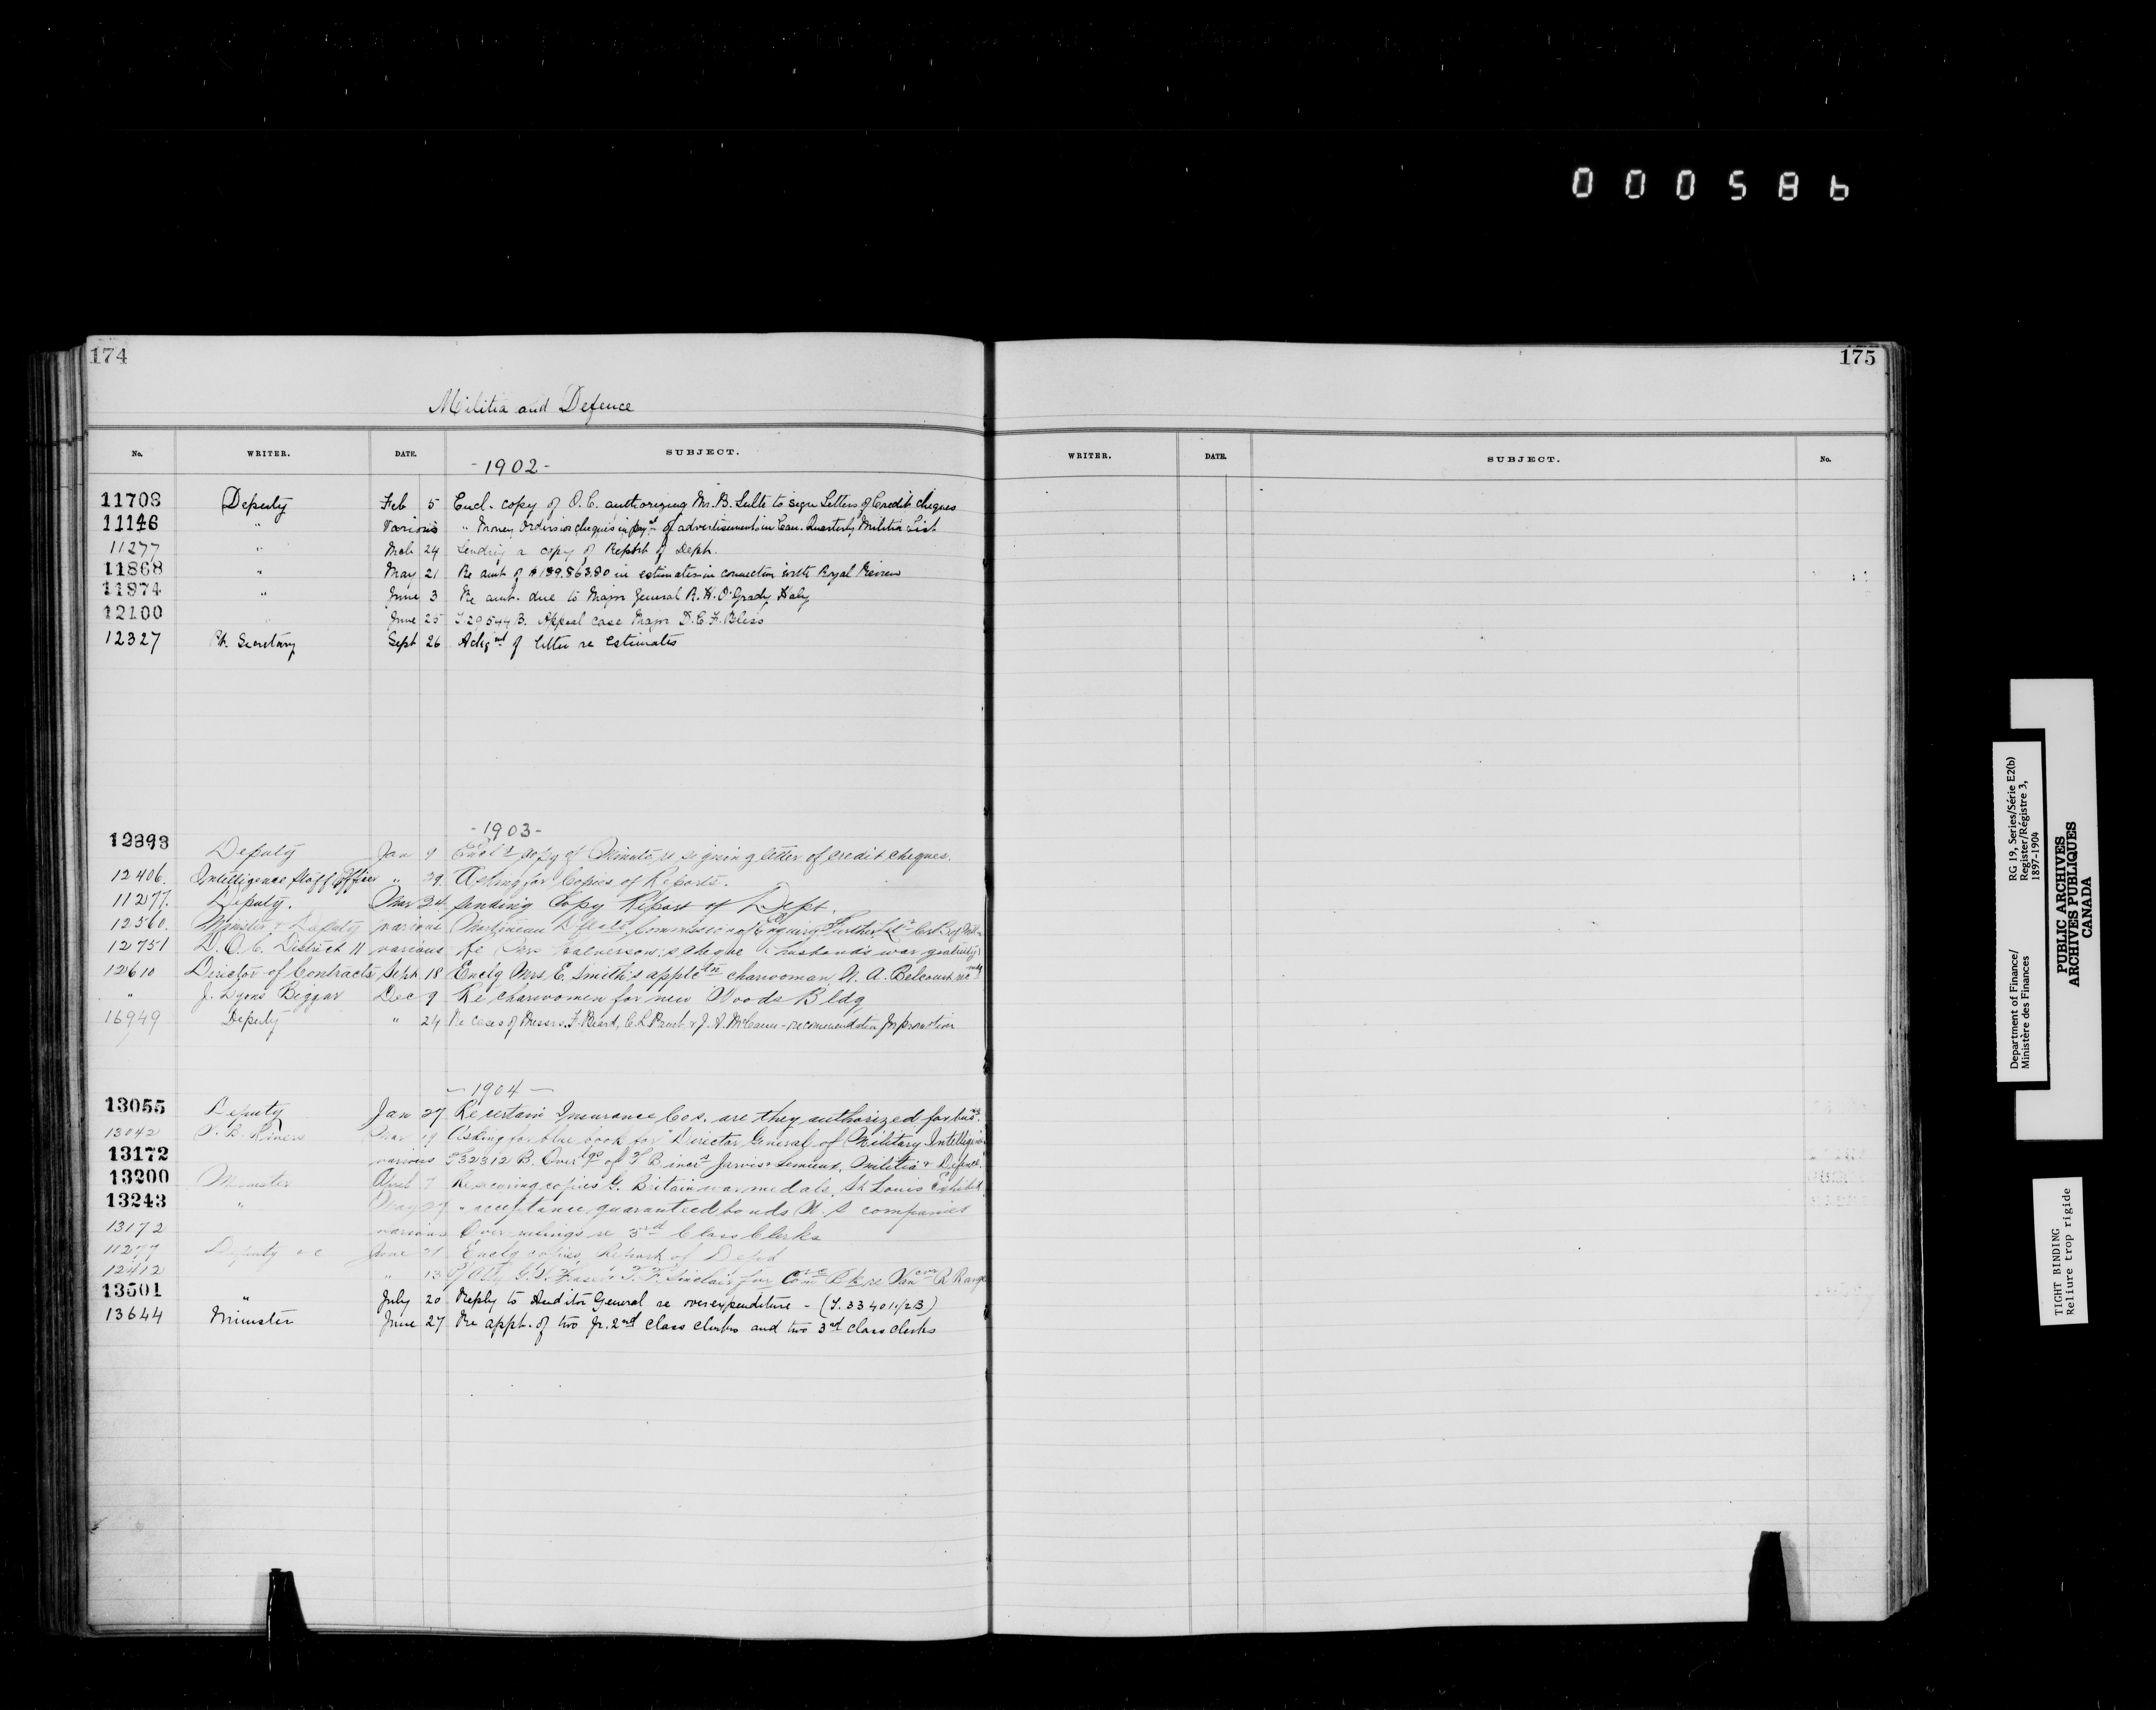 000586
174
175
Militia and Defence
No. WRITER. DATE. SUBJECT.
WRITER. DATE. SUBJECT. No.
-1902-
11708 Deputy Feb 5 Encl. copy of O.C. authorizing Mr. B. Sulte to sign Letters of Credit cheques
11146 " Various " Money Orders or cheques in paymt of advertisements in Can. Quarterly Militia List
11277 " Mch 24 Sending a copy of Report of Dept.
11868 " May 21 Re amt of $139.863.80 in estimates in connection with Royal Review
11974 " June 3 Re amt. due to Major General R. H. O'Grady Haly
12100 " June 25 T 29544 B. Appeal case Major D.C.F. Bliss
12327 Pt. Secretary Sept 26 Ackgmt of letter re Estimates
-1903-
12393 Deputy Jan 9 copy of Minute re signing letter of credit cheques.
12406. Intelligence Staff Officer " 29. Asking for Copies of Reports.
11277. Deputy. Mar 24. sending Copy Report of Dept.
12560. Minister & Deputy various Martineau Commission of Enquiry
12751 D.O.C. District 11 various Re Mrs cheque husband's war gratuity
12610 Director of Contracts Sept 18 Enclg Mrs. E. Smith's applctn charwoman, N. A. Belcourt
" J. Lyons Biggar Dec 9 Re charwomen for new Woods Bldg
16949 Deputy " 24 Re cases of Messrs. F. Beard, C.L. & J. A. McCann - recommendation for promotion
- 1904 -
13055 Deputy Jan 27 Re certain Insurance Cos. are they authorized for busns.
13042 Mar 19 Asking for blue book for "Director General of Military Intelligence
13172 various T 32312 B. of T B Jarvis & Militia & Defence.
13200 Minister April 7 Re securing copies G. Britain war medals, St Louis Exhibit.
13243 " May 27 " acceptance guaranteed bonds U. S companies
13172 various Over rulings re 3rd Class Clerks
11277 Deputy June 21 Enclg copies Report of Dept
12412 " 13 Sinclair for Range
13501 " July 20 Reply to Auditor General re overexpenditure - (T. 33401 1/2 B)
13644 Minister June 27 Re appt. of two Jr. 2nd class clerks and two 3rd class clerks
Department of Finance/
Ministère des Finances
RG 19, Series/Série E2(b)
Register/Régistre 3,
1897-1904
PUBLIC ARCHIVES
ARCHIVES PUBLIQUES
CANADA
TIGHT BINDING
Reliure trop rigide